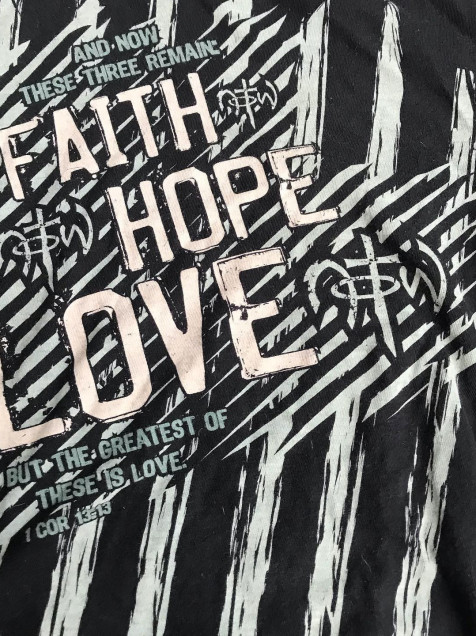 AND NOW
THESE THREE REMAIN:
FAITH
HOPE
LOVE
BUT THE GREATEST OF
THESE IS LOVE.
1 COR 13:13